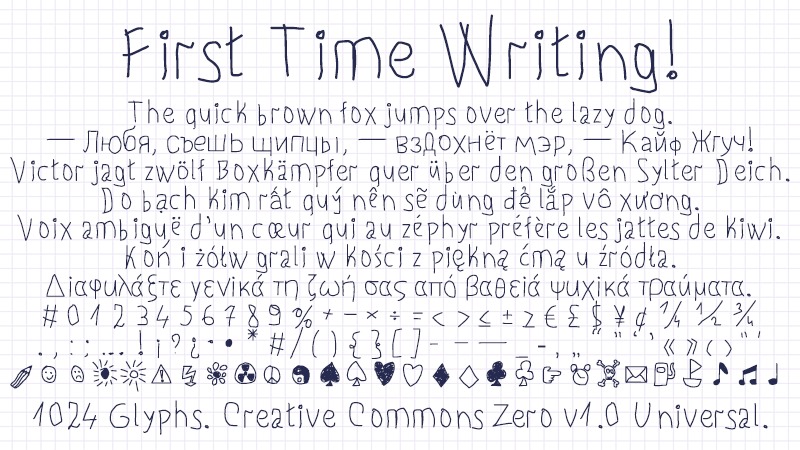 First Time Writing!
The quick brown fox jumps over the lazy dog.
— Любя, съешь щипцы, — вздохнёт мэр, — Кайф Жгуч!
Victor jagt zwölf Boxkämpfer quer über den großen Sylter Deich.
Do bạch kim rất quý nên sẽ dùng để lắp vô xương.
Voix ambiguë d'un cœur qui au zéphyr préfère les jattes de kiwi.
Koń i żółw grali w kości z piękną ćmą u źródła.
Διαφυλάξτε γενικά τη ζωή σας από βαθειά ψυχικά τραύματα.
# 0 1 2 3 4 5 6 7 8 9 % + − × ÷ = < > ≤ ± ≥ € £ $ ¥ ¢ ¼ ½ ¾
. , : ; … ! ¡ ? ¿ · • * # / ( ) { } [ ] - – — _ ‚ „ “ ” ‘ ’ « » ‹ › " '
✐ ☺ ☹ ☀ ☼ ⚠ ↯ ☢ ☮ ☯ ♠ ♤ ♥ ♡ ♦ ♢ ♣ ♧ ☞ ☠ ✉ ⛽ ⛵ ♪ ♫ ♩
1024 Glyphs. Creative Commons Zero v1.0 Universal.